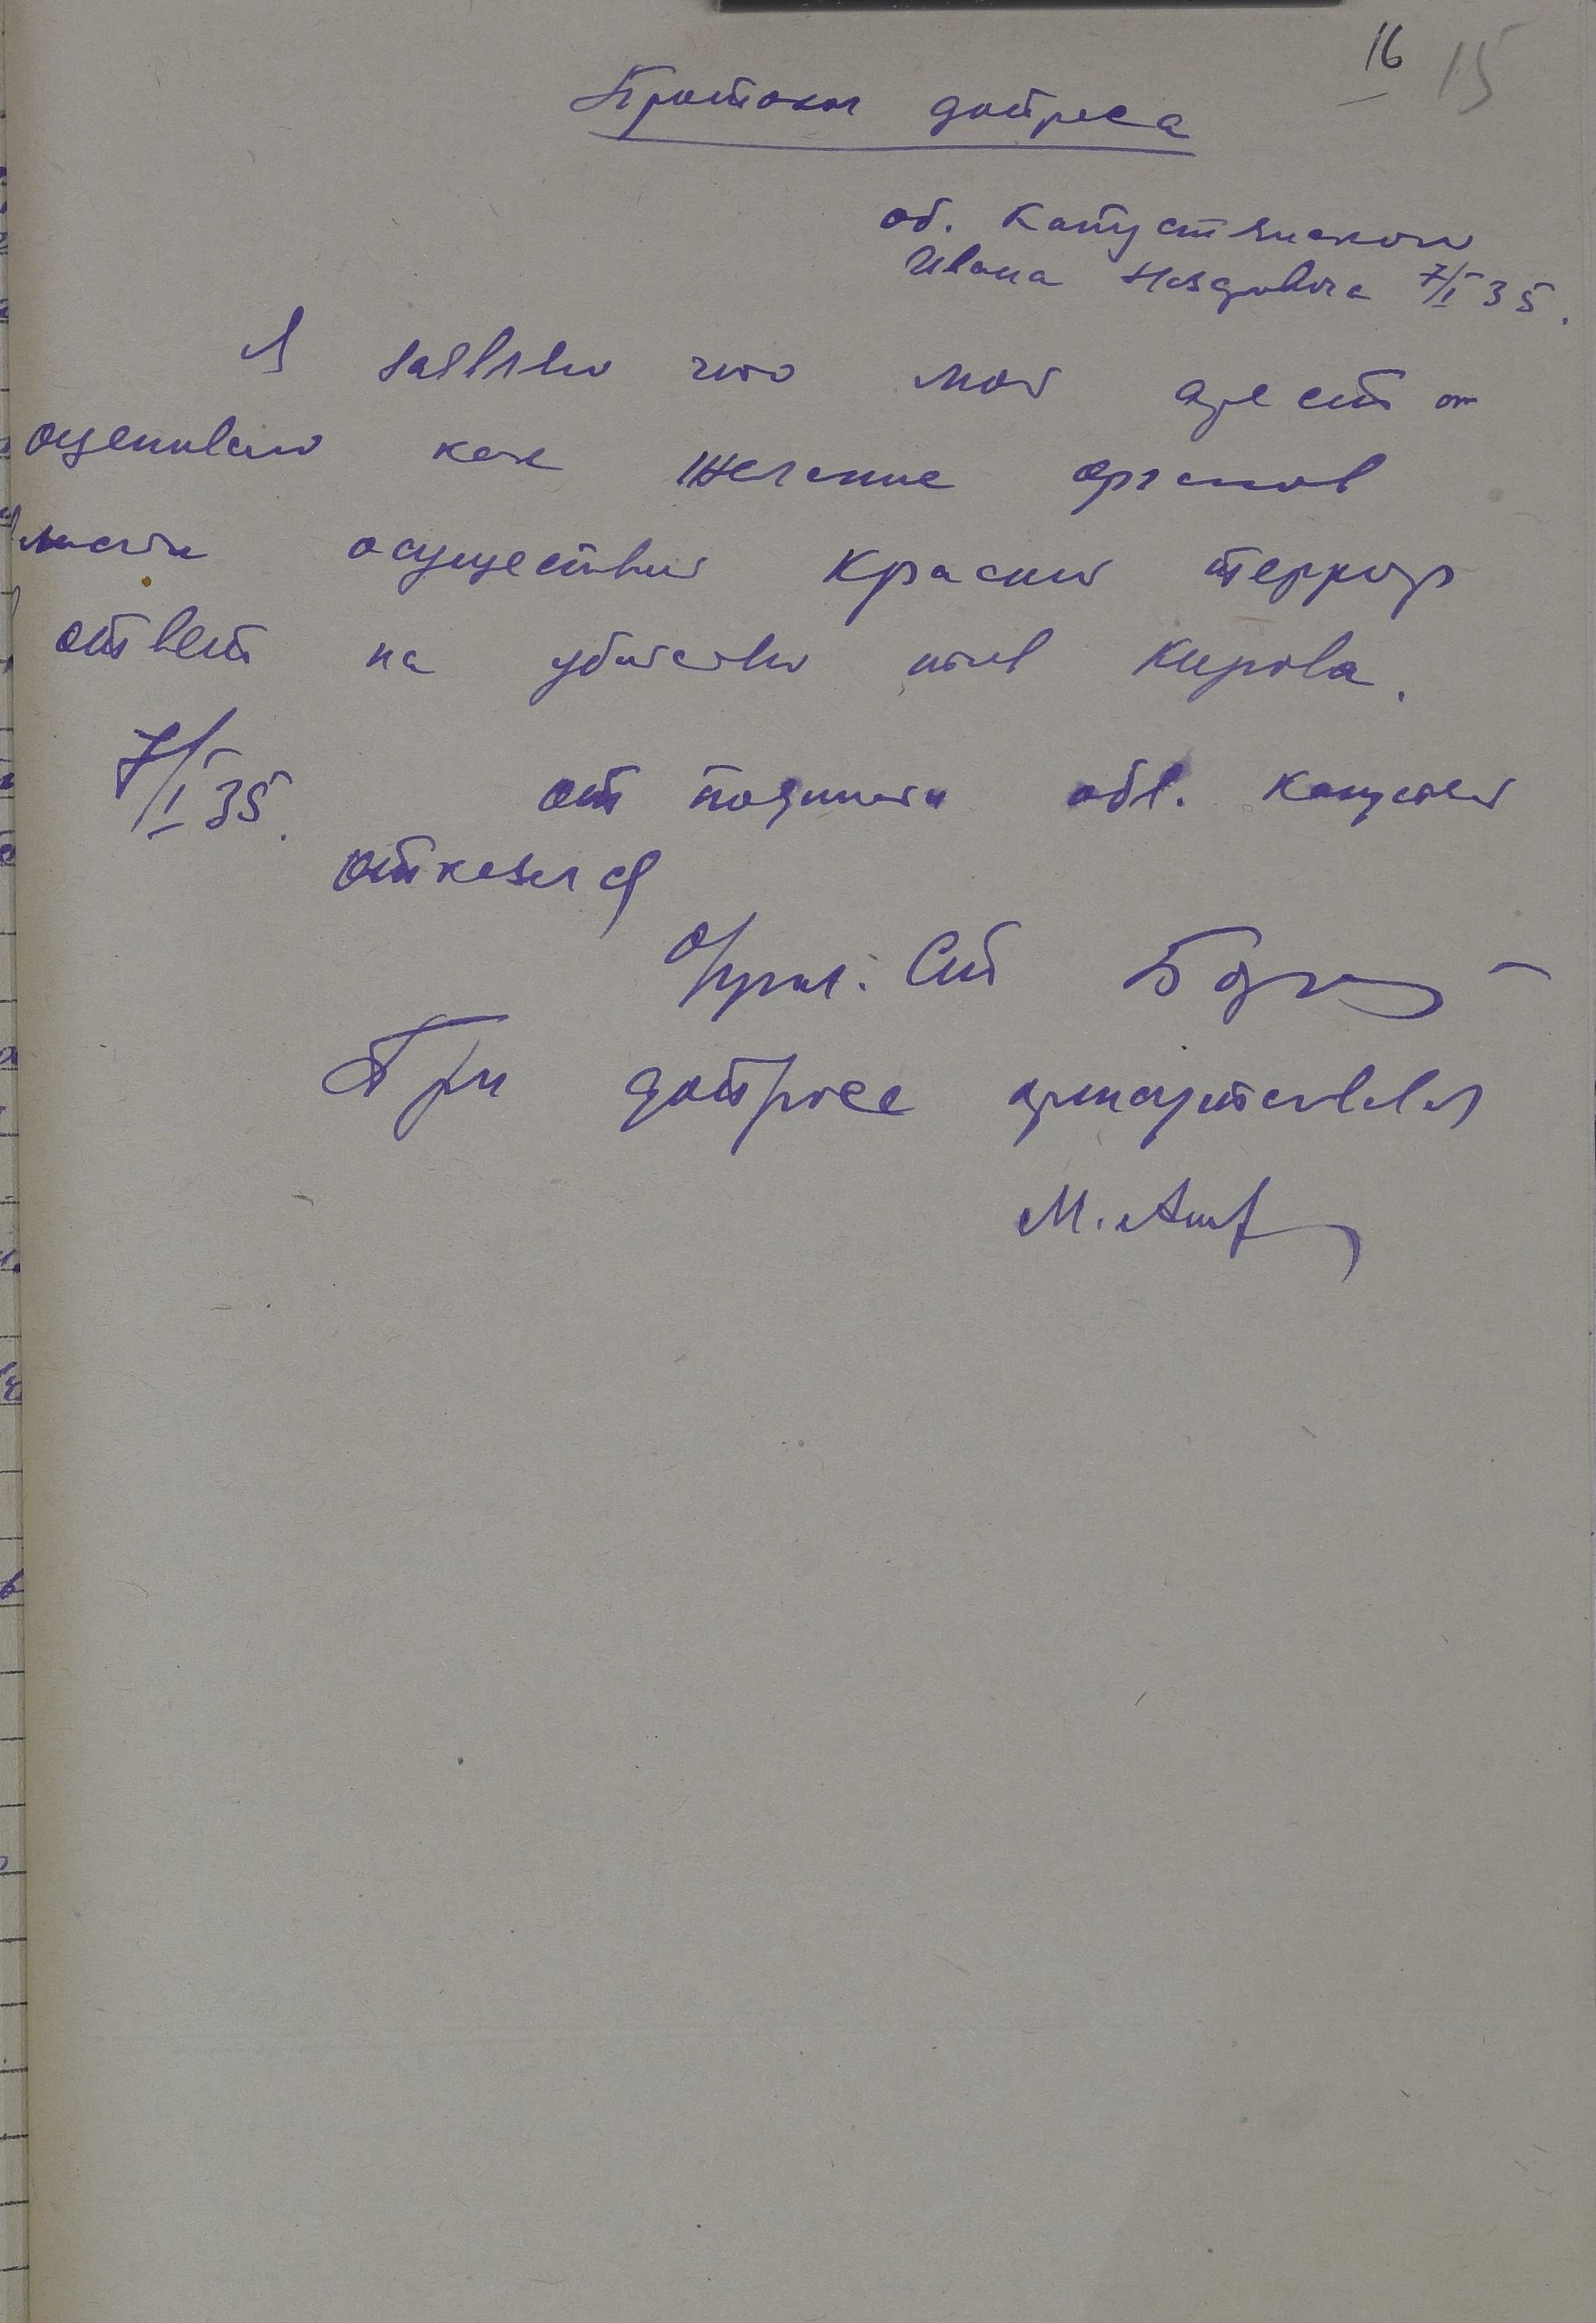 16 15
Протокол допроса
об. Капустянского
Ивана 7/I 35.
Я заявляю что мой арест
оцениваю как желание органов
власти осуществит красный террор
ответ на убийство тов Кирова.
7/I 35. от подписи обв. Капустян
отказался
Опрос. Ст
При допросе присутствовал
М.